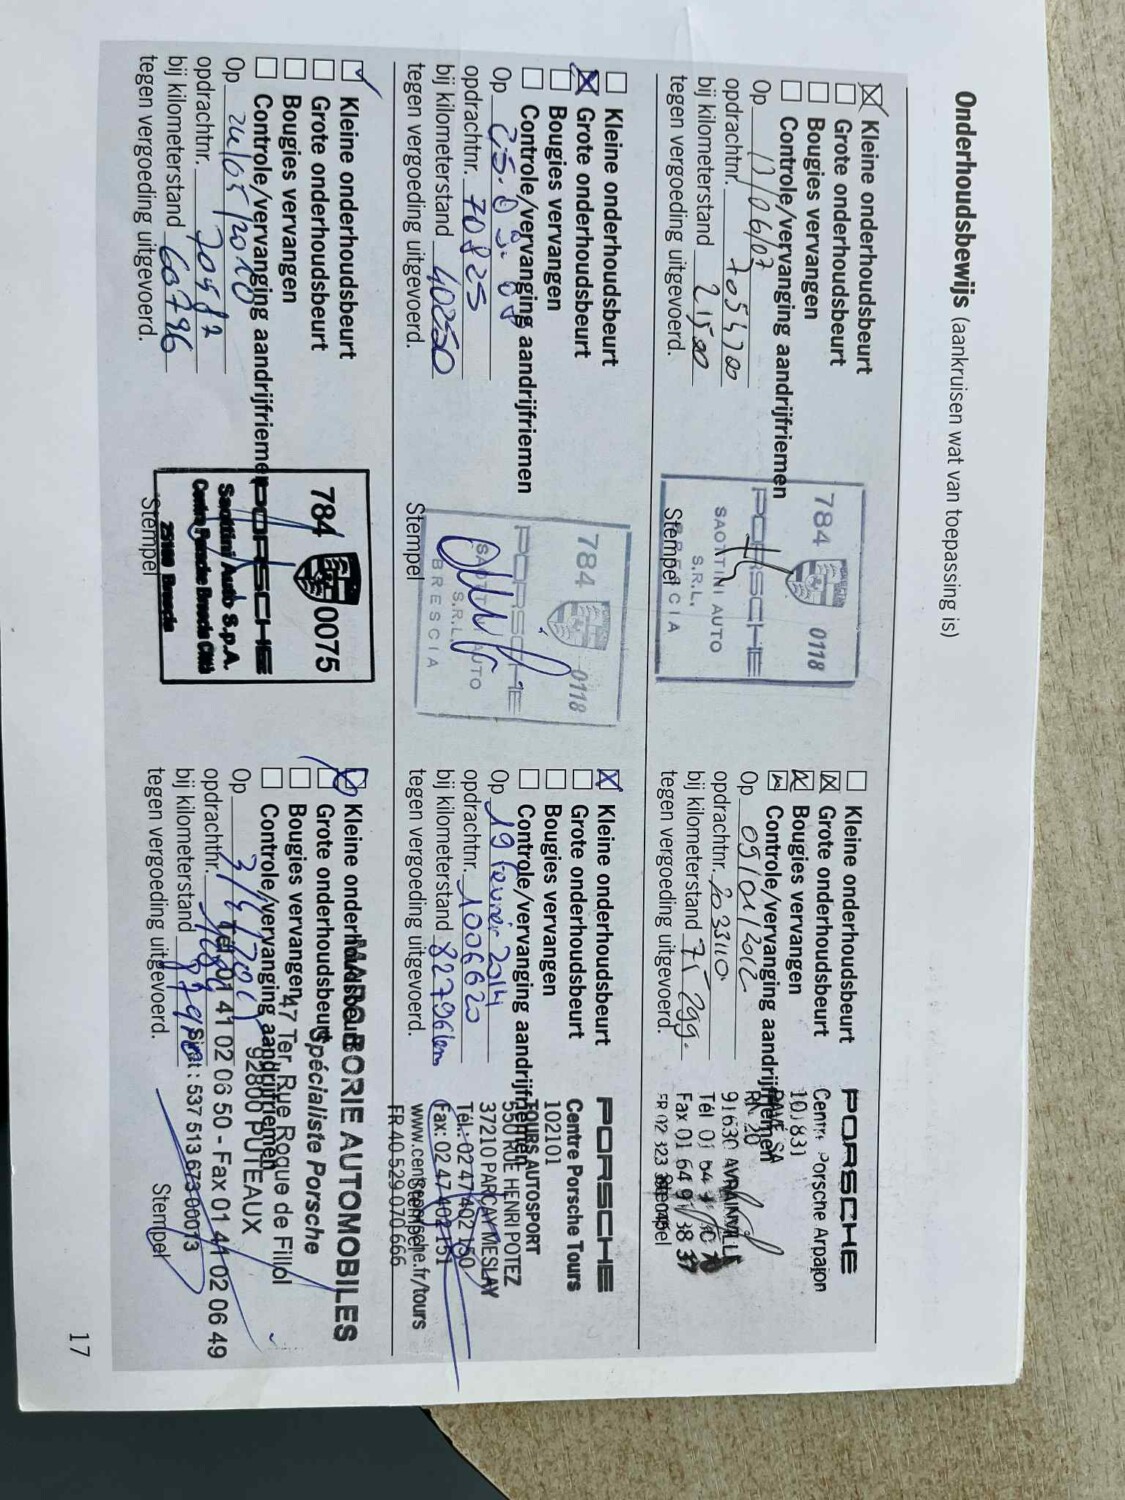 Onderhoudsbewijs (aankruisen wat van toepassing is)
Kleine onderhoudsbeurt
Grote onderhoudsbeurt
Bougies vervangen
Controle/vervanging aandrijfriemen
Op 12/06/07
opdrachtnr. 7054700
bij kilometerstand 21500
tegen vergoeding uitgevoerd.
784 0118
PORSCHE
SAOTTINI AUTO
S.R.L.
BRESCIA
Stempel
Kleine onderhoudsbeurt
Grote onderhoudsbeurt
Bougies vervangen
Controle/vervanging aandrijfriemen
Op 25.03.
opdrachtnr. 70825
bij kilometerstand 40250
tegen vergoeding uitgevoerd.
784 0118
PORSCHE
AUTO
S.R.L.
BRESCIA
Stempel
Kleine onderhoudsbeurt
Grote onderhoudsbeurt
Bougies vervangen
Controle/vervanging aandrijfriemen
Op 24/05/2010
opdrachtnr.
bij kilometerstand 60796
tegen vergoeding uitgevoerd.
784 0075
PORSCHE
Saottini Auto S.p.A.
Centro Porsche Brescia
Brescia
Stempel
Kleine onderhoudsbeurt
Grote onderhoudsbeurt
Bougies vervangen
Controle/vervanging aandrijfriemen
Op 05/01/2012
opdrachtnr. 2033110
bij kilometerstand 75299.
tegen vergoeding uitgevoerd.
PORSCHE
Centre Porsche Arpajon
101831
RN 20
91630 AVRAINVILLE
Tél 01 64
Fax 01 64 9 38
Stempel
Kleine onderhoudsbeurt
Grote onderhoudsbeurt
Bougies vervangen
Controle/vervanging aandrijfriemen
Op 19 février 2014
opdrachtnr. 1006620
bij kilometerstand 82796km
tegen vergoeding uitgevoerd.
PORSCHE
Centre Porsche Tours
102101
TOURS AUTOSPORT
RUE HENRI POTEZ
37210 PARÇAY MESLAY
Tél.: 02 47 402 150
Fax: 02 47 402 151
FR 40 529 070 666
Kleine onderhoudsbeurt
Grote onderhoudsbeurt
Bougies vervangen
Controle/vervanging aandrijfriemen
Op
opdrachtnr.
bij kilometerstand
tegen vergoeding uitgevoerd.
BORIE AUTOMOBILES
Spécialiste Porsche
47 Ter, Rue Roque de Fillol
92800 PUTEAUX
Tél 01 41 02 06 50 - Fax 01 41 02 06 49
Siret : 537 513 673 00013
Stempel
17